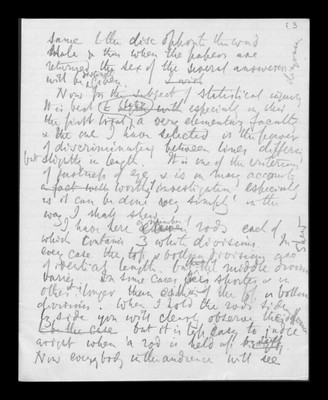 same to the disc opposite the word
Male & then when the papers are
returned the sex of the several answerers
will be evident
Now for the subject of statistical inquiry
It is best to begin with especially in this
the first trial, a very elementary faculty
& the one I have selected is the power
of discriminating between lines differing
but slightly in length. It is one of the criterions
of justness of eye, & is on many accounts
worthy investigation especially
as it can be done very simply in the
way I shall shew
I have here rods each of
which contains 3 white divisions. In
every case the top & bottom divisions are
of identical length. but the middle division
varies. In some cases it is shorter & in
others longer than either of the top or bottom
divisions. When I hold the rods side
by side you will clearly observe the
but it is less easy to judge
aright when a rod is held up
Now everybody in the audience will see